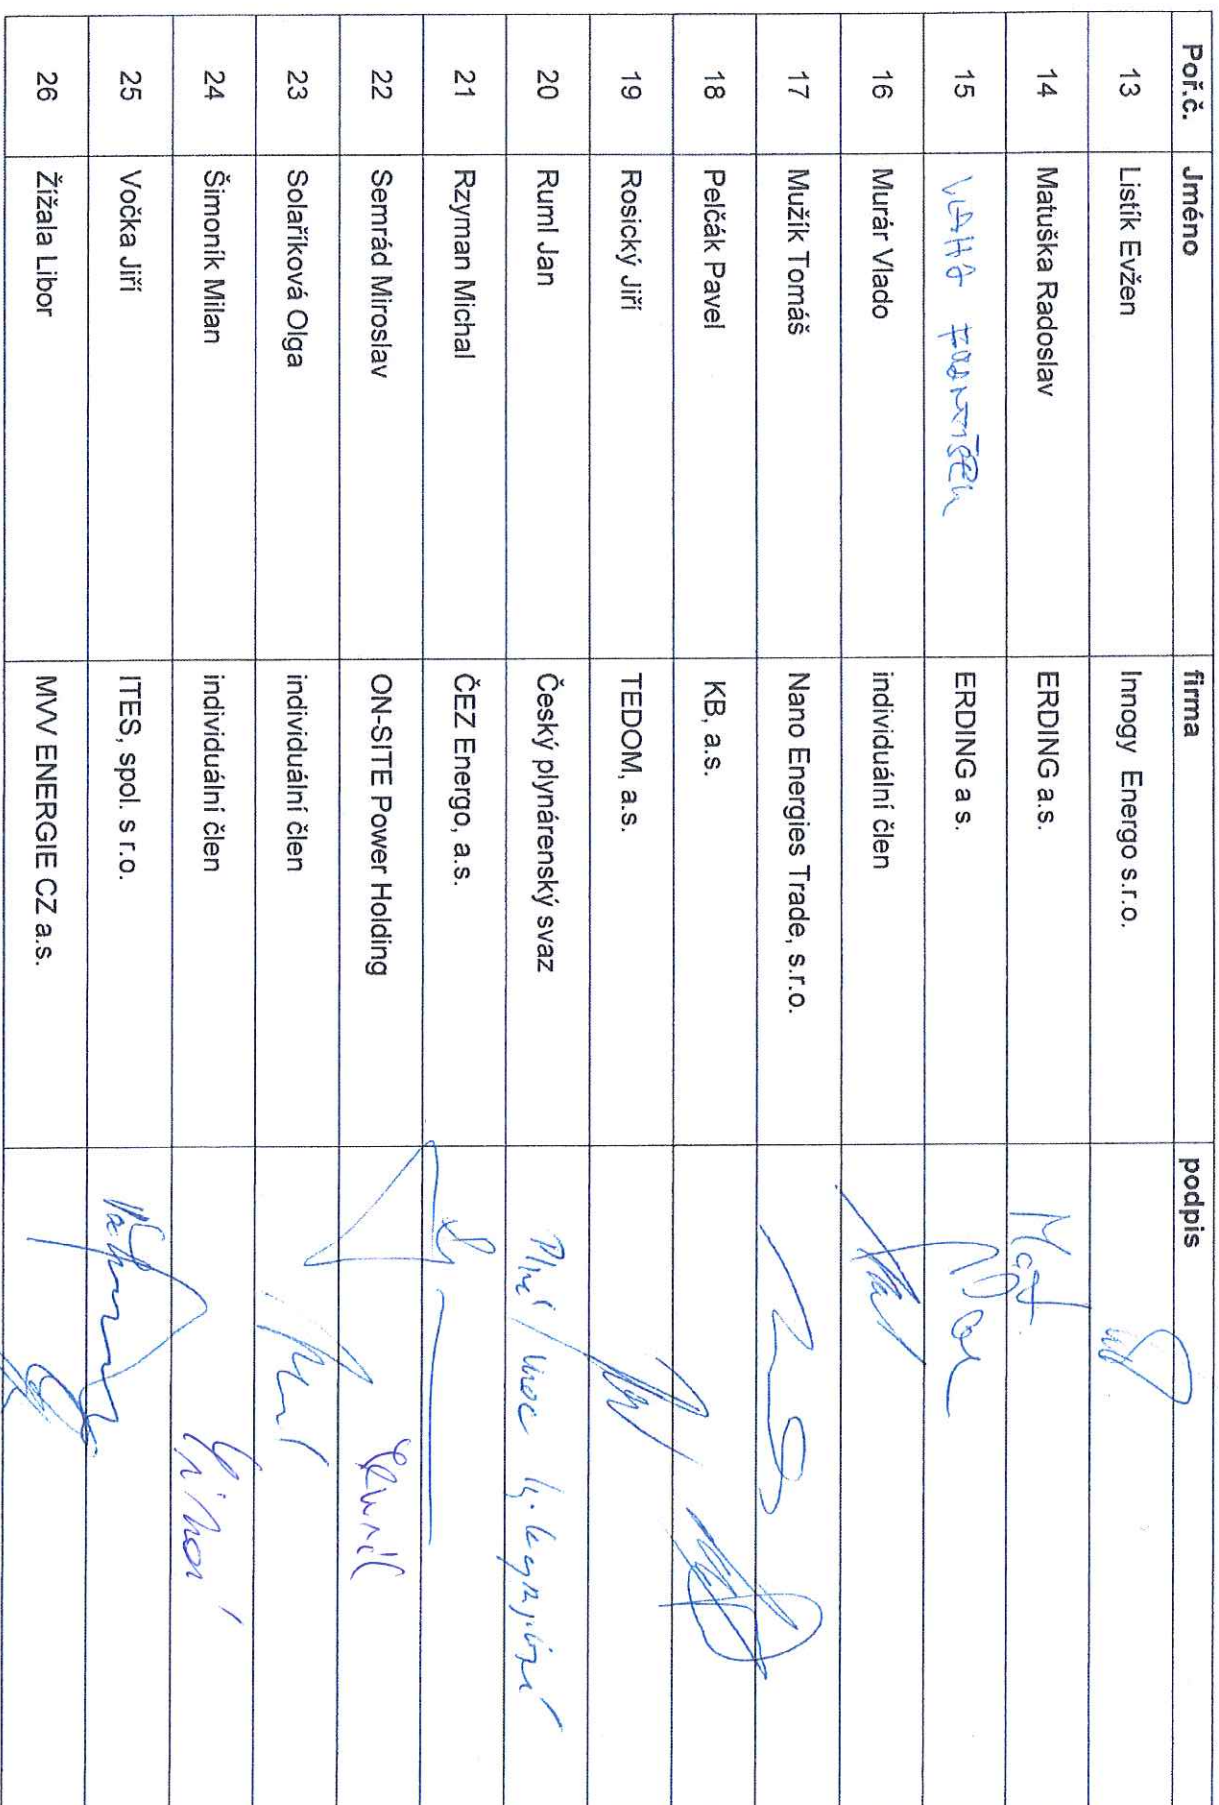 Poř.č. Jméno firma podpis
13 Listík Evžen Innogy Energo s.r.o.
14 Matuška Radoslav ERDING a.s.
15 VLAHA FRANTIŠEK ERDING a s.
16 Murár Vlado individuální člen
17 Mužík Tomáš Nano Energies Trade, s.r.o.
18 Pelčák Pavel KB, a.s.
19 Rosický Jiří TEDOM, a.s.
20 Ruml Jan Český plynárenský svaz
21 Rzyman Michal ČEZ Energo, a.s.
22 Semrád Miroslav ON-SITE Power Holding
23 Solaříková Olga individuální člen
24 Šimoník Milan individuální člen
25 Vočka Jiří ITES, spol. s r.o.
26 Žížala Libor MVV ENERGIE CZ a.s.